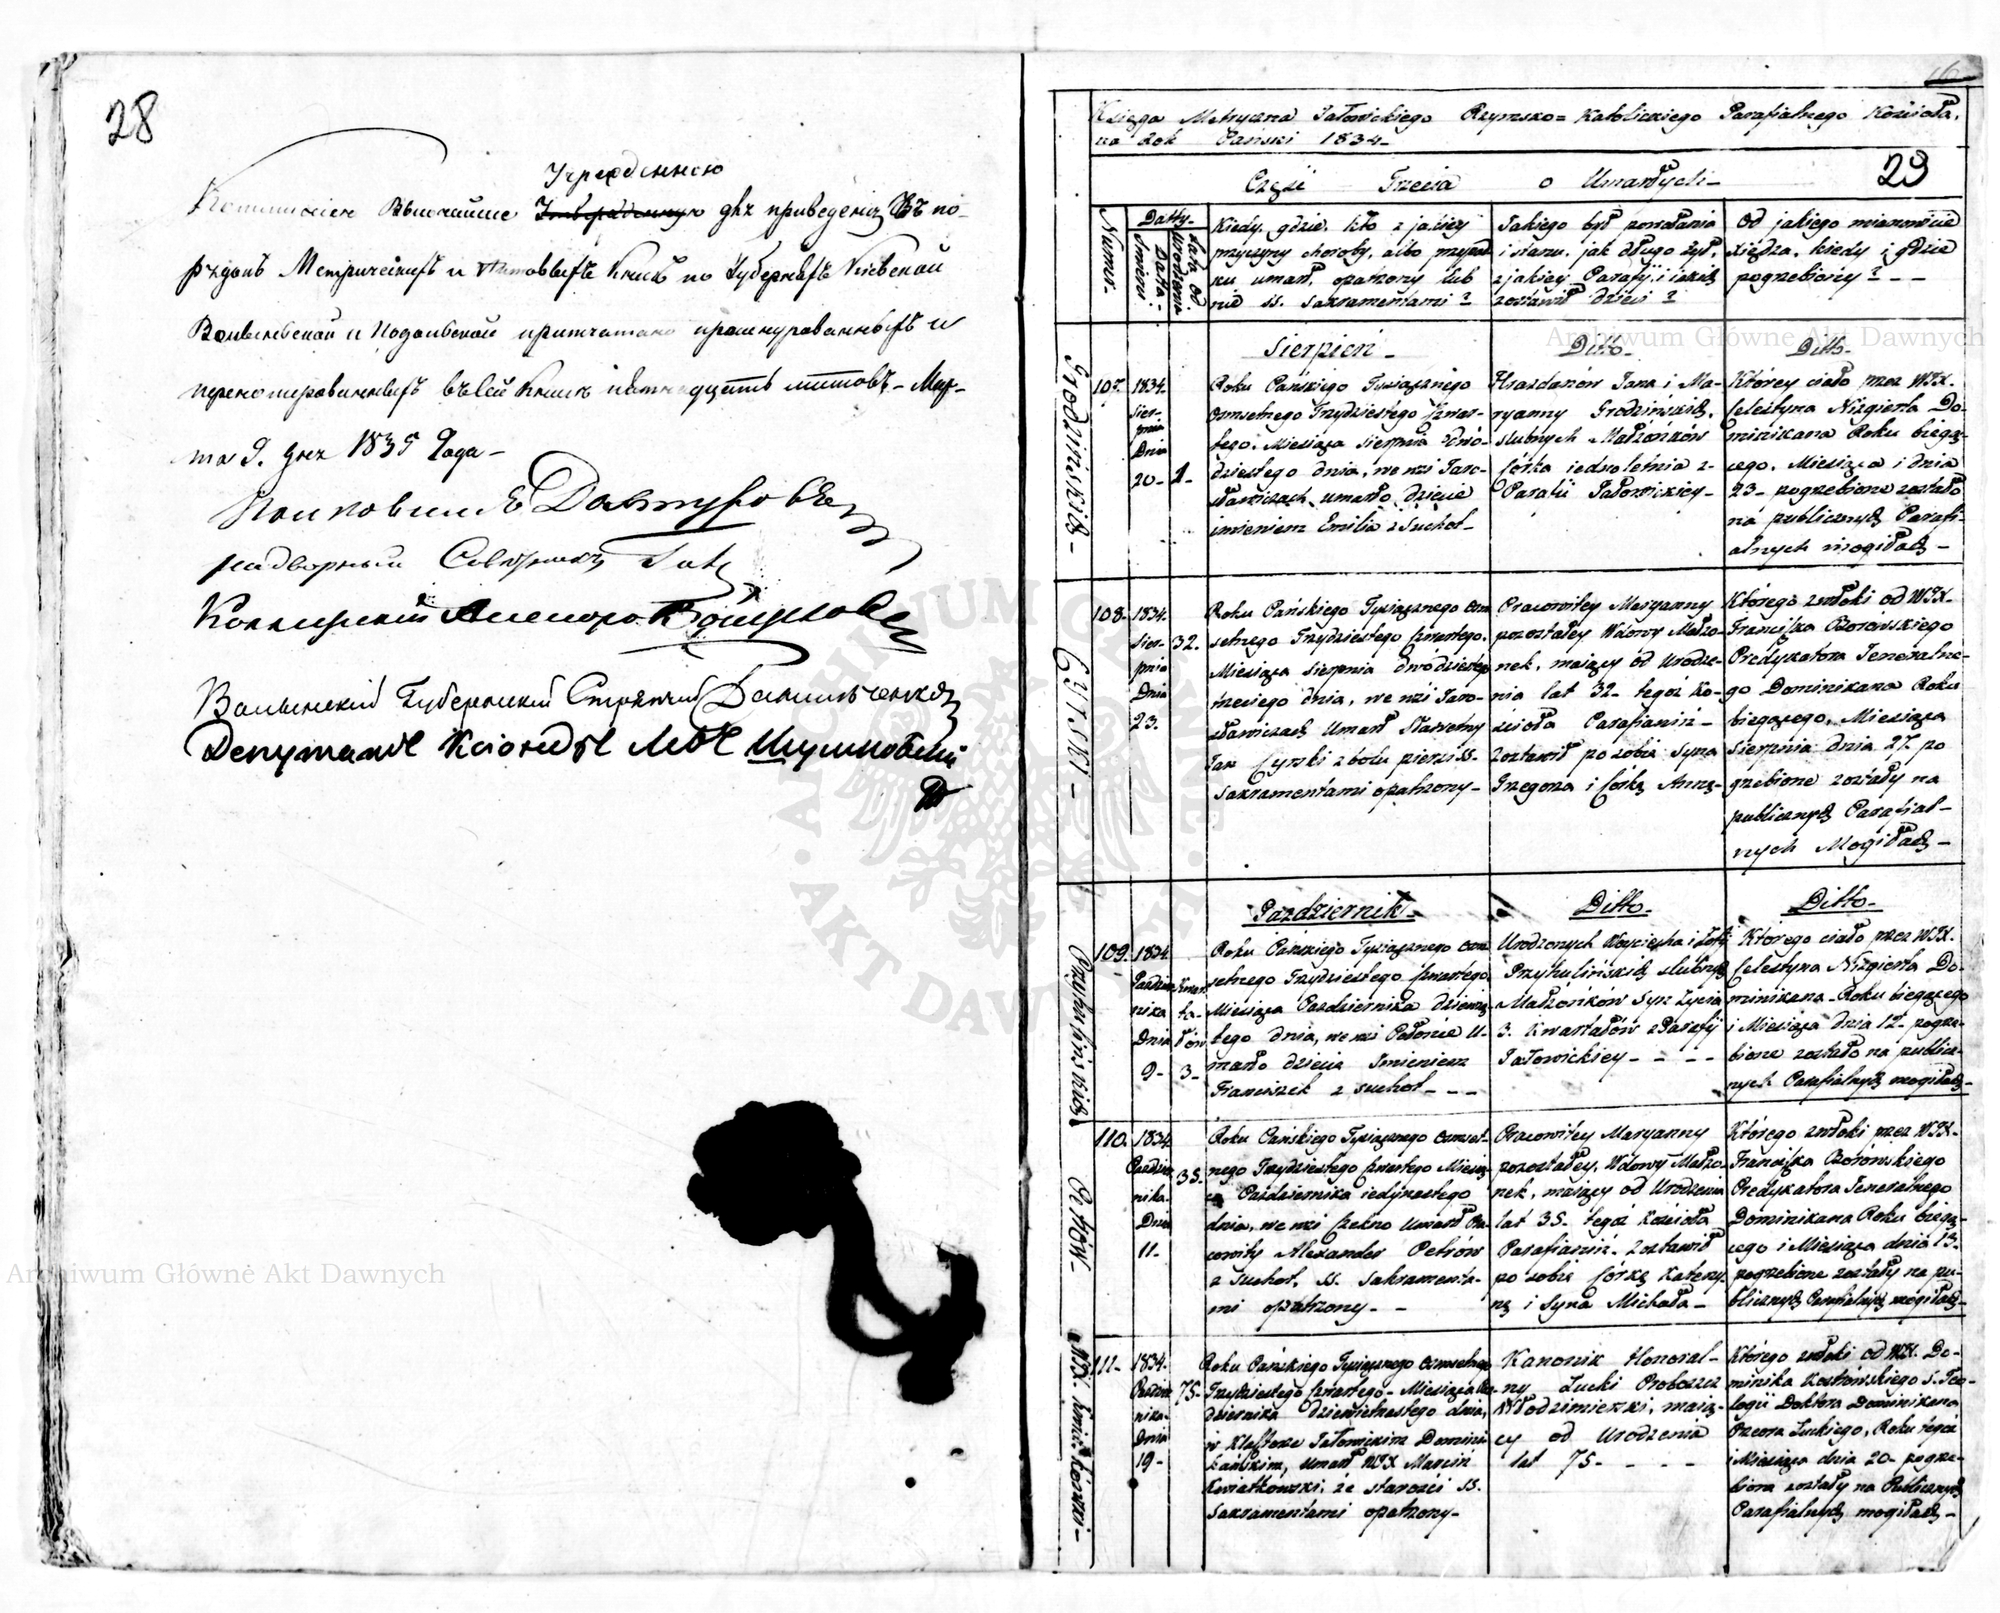 28
Учрежденною
Коммисiею Высочайше для приведенiя Въ по-
рядокъ Метрическихъ и Актовыхъ Книгъ по Губернiямъ Кiевской
Волынской и Подольской припечатано прошнурованныхъ и
перенумерованныхъ въ сей Книгѣ пятнадцать листовъ - Мар-
та 9. дня 1835 Года -
Надворный Совѣтникъ
Коллежскiй Ассесоръ
Волынскiй Губернскiй Стряпчiй
Депутатъ Ксiондзъ
16
Księga Metryczna Jałowickiego Rzymsko=Katolickiego Parafialnego Kościoła,
na Rok Pański 1834-
Część Trzecia o Umarłych-
29
Numer.
Datty-
Datta Śmierci
Lata od Urodzenia
Kiedy, gdzie, kto z jakiey
przyczyny choroby, albo przypad
ku umarł, opatrzony lub
nie SS. Sakramentami?
Jakiego był powołania
i stanu, jak długo żył,
z jakiey Parafij i jakich
zostawił dzieci?
Od jakiego mianowicie
Xiędza, kiedy i gdzie
pogrzebiony? - -
Grodzińskich -
107.
1834.
Sier-
pnia
Dnia
20-
1-
Sierpień-
Roku Pańskiego Tysiącznego
Ośmsetnego Trzydziestego Czwar-
tego, Miesiąca Sierpnia dwó-
dziestego dnia, we wsi Jaro-
sławiczach umarło dziecie
imieniem Emilia z Suchot-
Ditto-
Jana i Ma-
ryanny Grodzińskich,
slubnych Małżonków
Córka iednoletnia z
Parafii Jałowickiey-
Ditto-
Którey ciało przez WJX.
Celestyna Nizgierta Do-
minikana Roku bieżą-
cego, Miesiąca i dnia
23- pogrzebione zostało
na publicznych Parafi-
alnych mogiłach-
Cyrski -
108.
1834.
Sier-
pnia
Dnia
23.
32.
Roku Pańskiego Tysiącznego Ośm
setnego Trzydziestego Czwartego,
Miesiąca Sierpnia dwódziestego
trzeciego dnia, we wsi Jaro-
sławiczach Umarł Sławetny
Jan Cyrski z bolu piersi SS.
Sakramentami opatrzony-
Pracowitey Maryanny
pozostałey Wdowy Małżo-
nek, maiący od Urodze-
nia lat 32- tegoż Ko-
ścioła Parafianin-
Zostawił po sobie Syna
Grzegorza i Córkę Annę-
Którego zwłoki od WJX.
Franciszka Borowskiego
Predykatora Jeneralne-
go Dominikana Roku
bieżącego, Miesiąca
Sierpnia dnia 27. po
grzebione zostały na
publicznych Parafial-
nych Mogiłach-
Przyhulińskich
109.
1834.
Paździer
nika
Dnia
9-
Kwar
ta-
łów
3-
Październik-
Roku Pańskiego Tysiącznego Ośm
setnego Trzydziestego Czwartego,
Miesiąca Października dziewią-
tego dnia, we wsi Połonie U-
marło dziecie Imieniem
Franciszek z suchot- - -
Ditto-
Urodzonych Woyciecha i Zofij
Przyhulińskich slubnych
Małżonków Syn życia
3. Kwartałów z Parafij
Jałowickiey- - - -
Ditto-
Którego ciało przez WJX.
Celestyna Nizgierta Do-
minikana- Roku bieżącego
i Miesiąca dnia 12- pogrze-
bione zostało na publicz-
nych Parafialnych mogiłach-
Petrów.
110.
1834.
Paździer
nika.
Dnia
11-
35.
Roku Pańskiego Tysiącznego Ośmset-
nego Trzydziestego Czwartego Miesią-
ca Października iedynastego
dnia, we wsi Czekno Umarł Pra-
cowity Alexander Petrów
z Suchot, SS. Sakramenta-
mi opatrzony- -
Pracowitey Maryanny
pozostałey, Wdowy Małżo-
nek, maiący od Urodzenia
lat 35- tegoż Kościoła
Parafianin- Zostawił
po sobie Córkę Katery-
nę i Syna Michała-
Którego zwłoki przez WJX.
Franciszka Borowskiego
Predykatora Jeneralnego
Dominikana Roku bieżą-
cego i Miesiąca dnia 13-
pogrzebione zostały na pu-
blicznych Parafialnych mogiłach-
111-
1834.
Paździer
nika-
Dnia
19-
75-
Roku Pańskiego Tysiącznego Ośmsetnego
Trzydziestego Czwartego- Miesiąca Paź-
dziernika dziewiętnastego dnia,
w Klasztorze Jałowickim Domini
kańskim, Umarł WJX Marcin
Kwiatkowski, ze starości SS.
Sakramentami opatrzony-
Kanonik Honoral-
ny Łucki Proboszcz
Włodzimirski, maią-
cy od Urodzenia
lat 75- - - -
Którego zwłoki od WJX. Do-
minika S. Teo-
logii Doktora Dominikana
Przeora Łuckiego, Roku tegoż
i Miesiąca dnia 20- pogrze-
biona zostały na Publicznych
Parafialnych mogiłach-
Archiwum Główne Akt Dawnych
Archiwum Główne Akt Dawnych
ARCHIWUM GŁÓWNE · AKT DAWNYCH ·